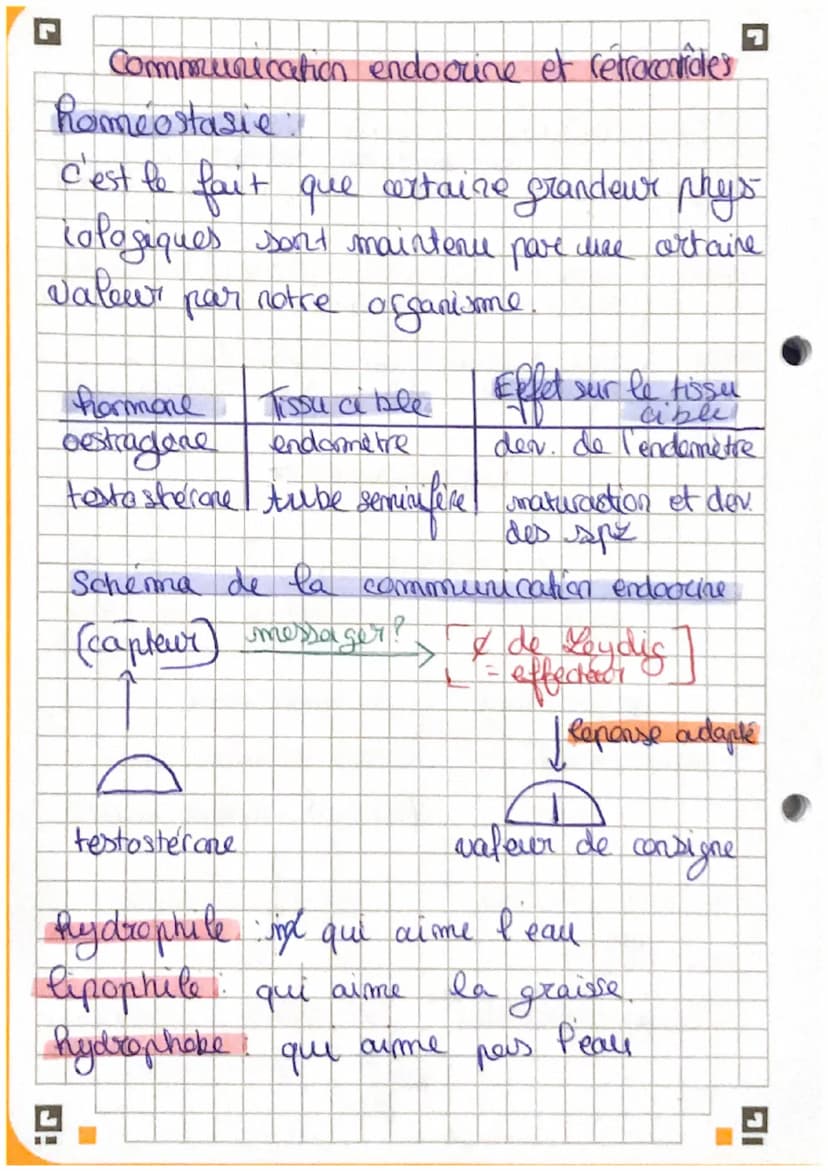 Communication endocrine et rétrocontrôles
homéostasie :
c'est le fait que certaine grandeur phys
iologiques sont maintenu par une certaine
valeur par notre organisme.
hormone | Tissu cible | Effet sur le tissu
cible
oestragone | endomètre | dev. de l'endomètre
testostérone | tube seminifère | maturaction et dev.
des spz
Schéma de la communication endocrine
(capteur) messager? [ ¢ de Leydig ]
= effecteur
Reponse adapté
testostérone valeur de consigne
hydrophile : qui aime l'eau
lipophile : qui aime la graisse.
hydrophobe : qui aime pas l'eau